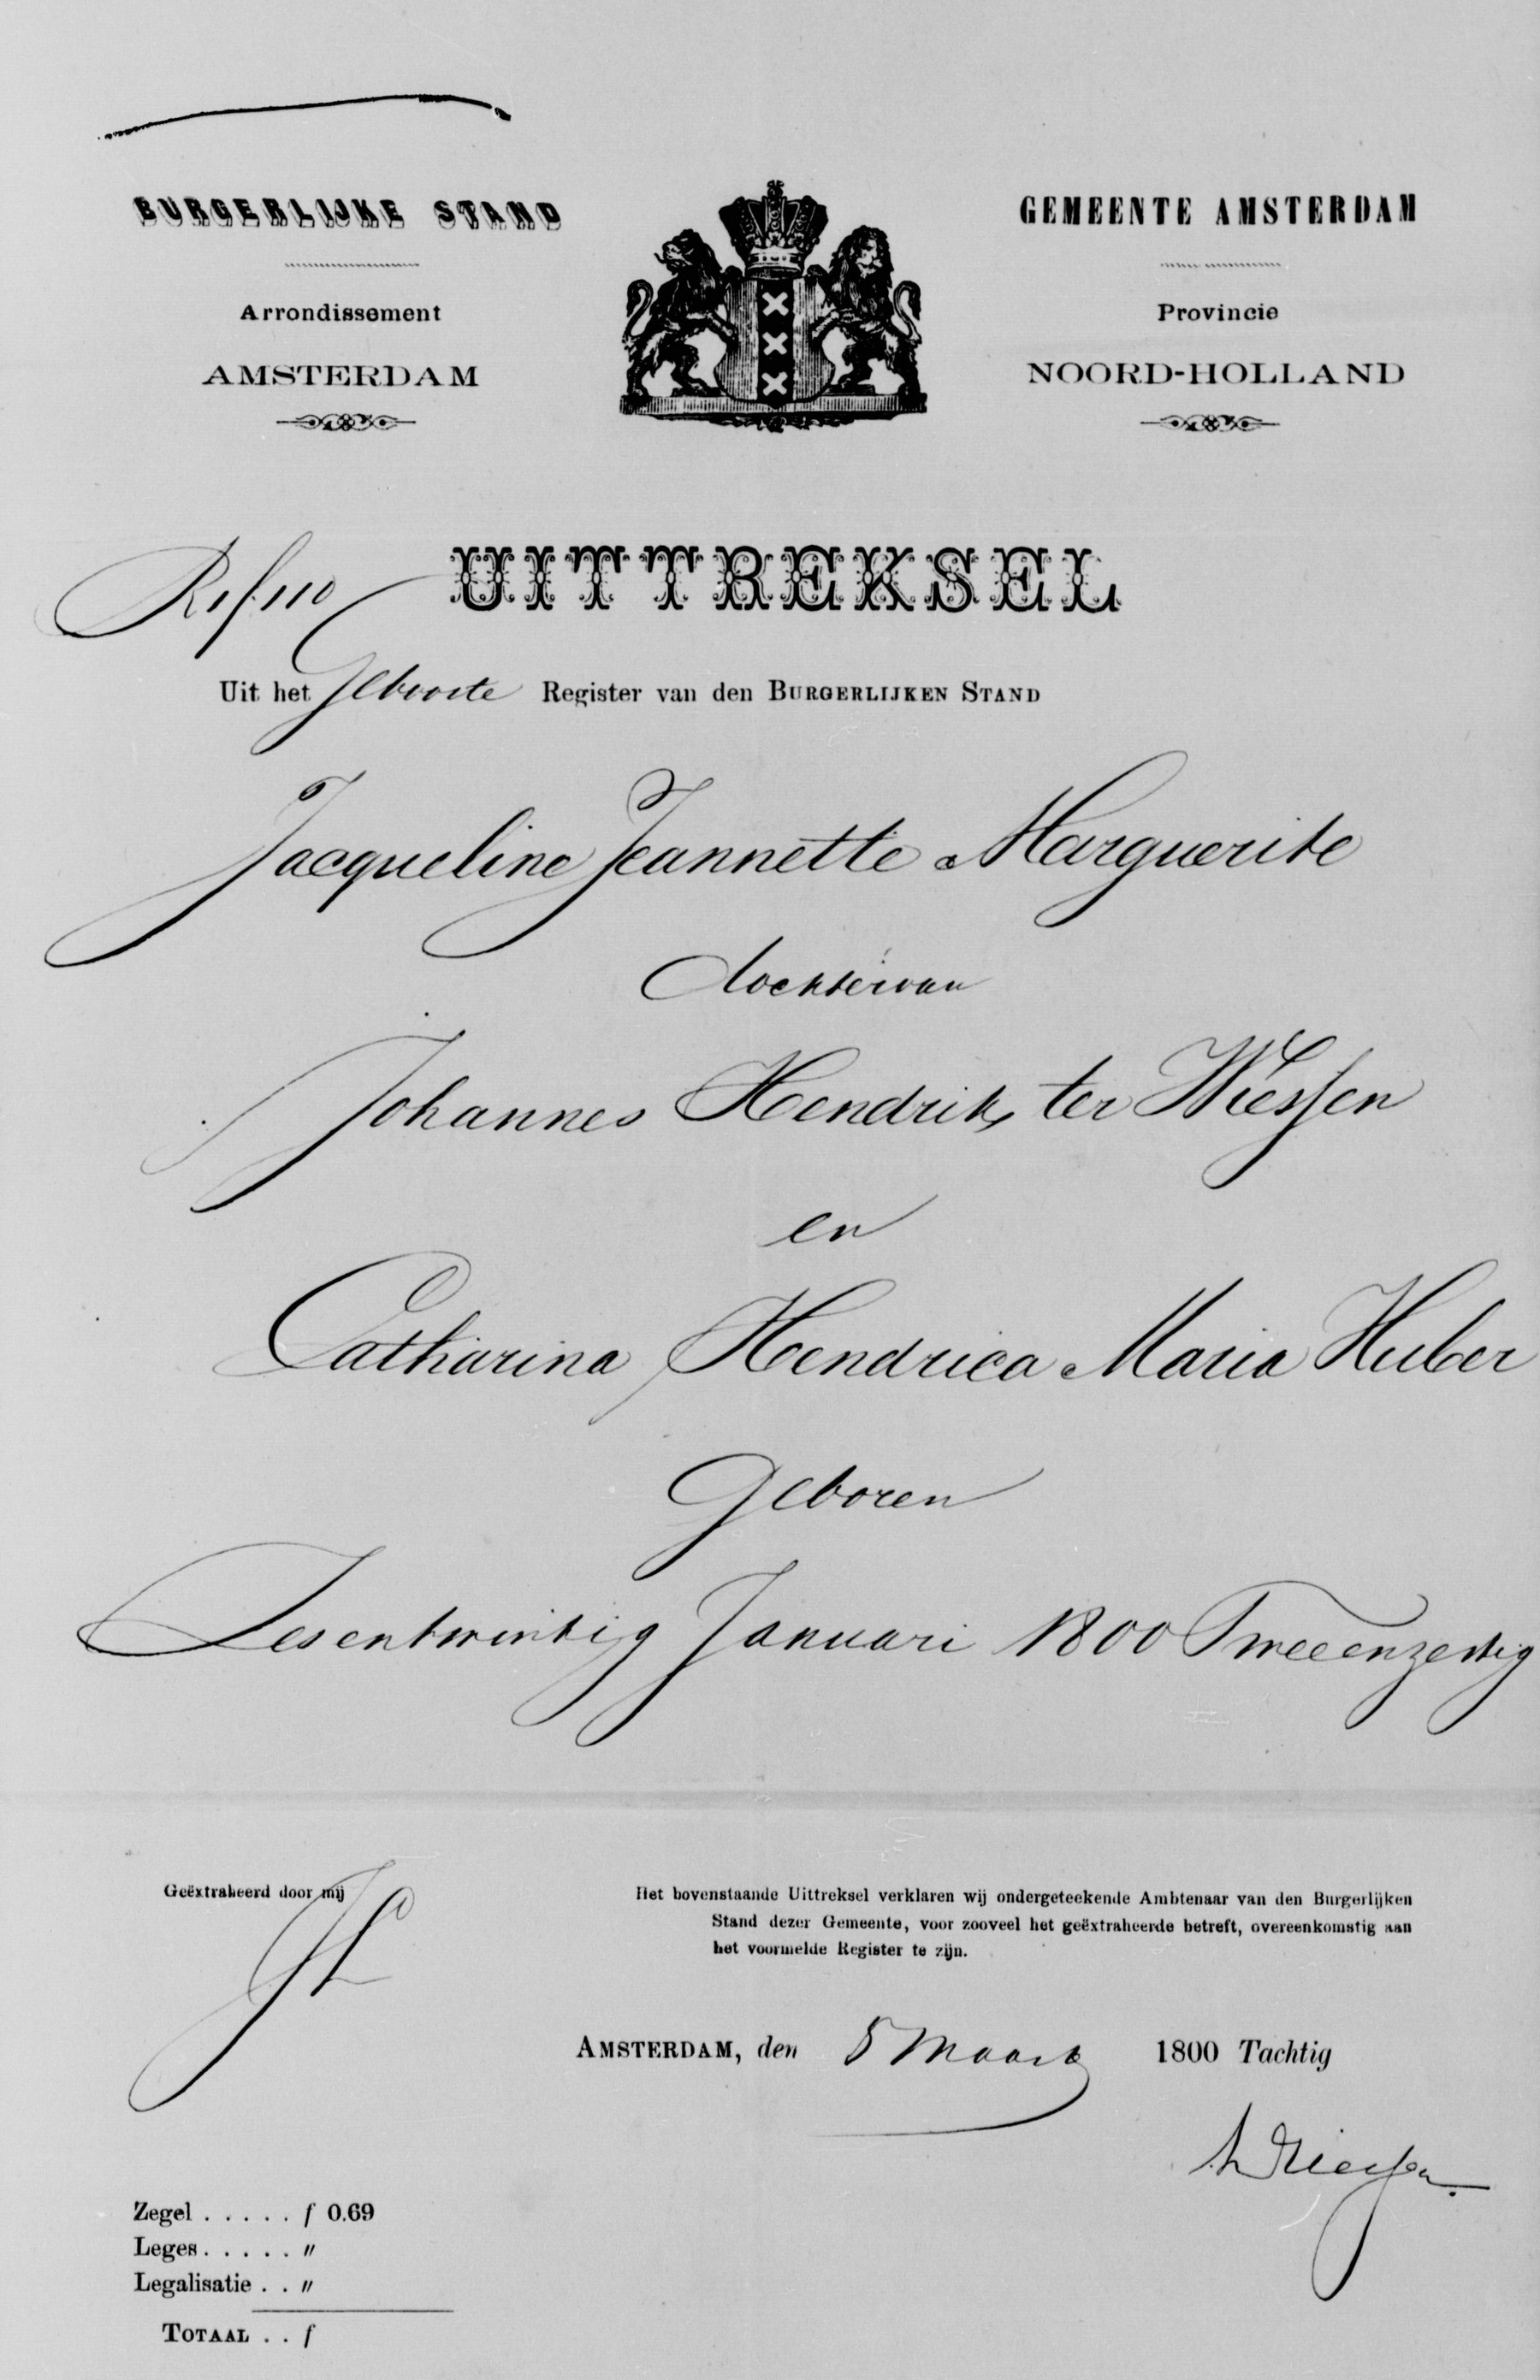 BURGERLIJKE STAND
GEMEENTE AMSTERDAM
Arrondissement
Provincie
AMSTERDAM
NOORD-HOLLAND
UITTREKSEL
Uit het Geboorte Register van den BURGERLIJKEN STAND
Jacqueline Jeannette Marguerite
dochter van
Johannes Hendrik ter Wessen
en
Catharina Hendrica Maria Huber
Geboren
Zesentwintig Januari 1800 Tweeenzestig
Geëxtraheerd door mij
Het bovenstaande Uittreksel verklaren wij ondergeteekende Ambtenaar van den Burgerlijken
Stand dezer Gemeente, voor zooveel het geëxtraheerde betreft, overeenkomstig aan
het voormelde Register te zijn.
AMSTERDAM, den 5 Maart 1800 Tachtig
Zegel . . . . . f 0.69
Leges . . . . . "
Legalisatie . . "
TOTAAL . . f